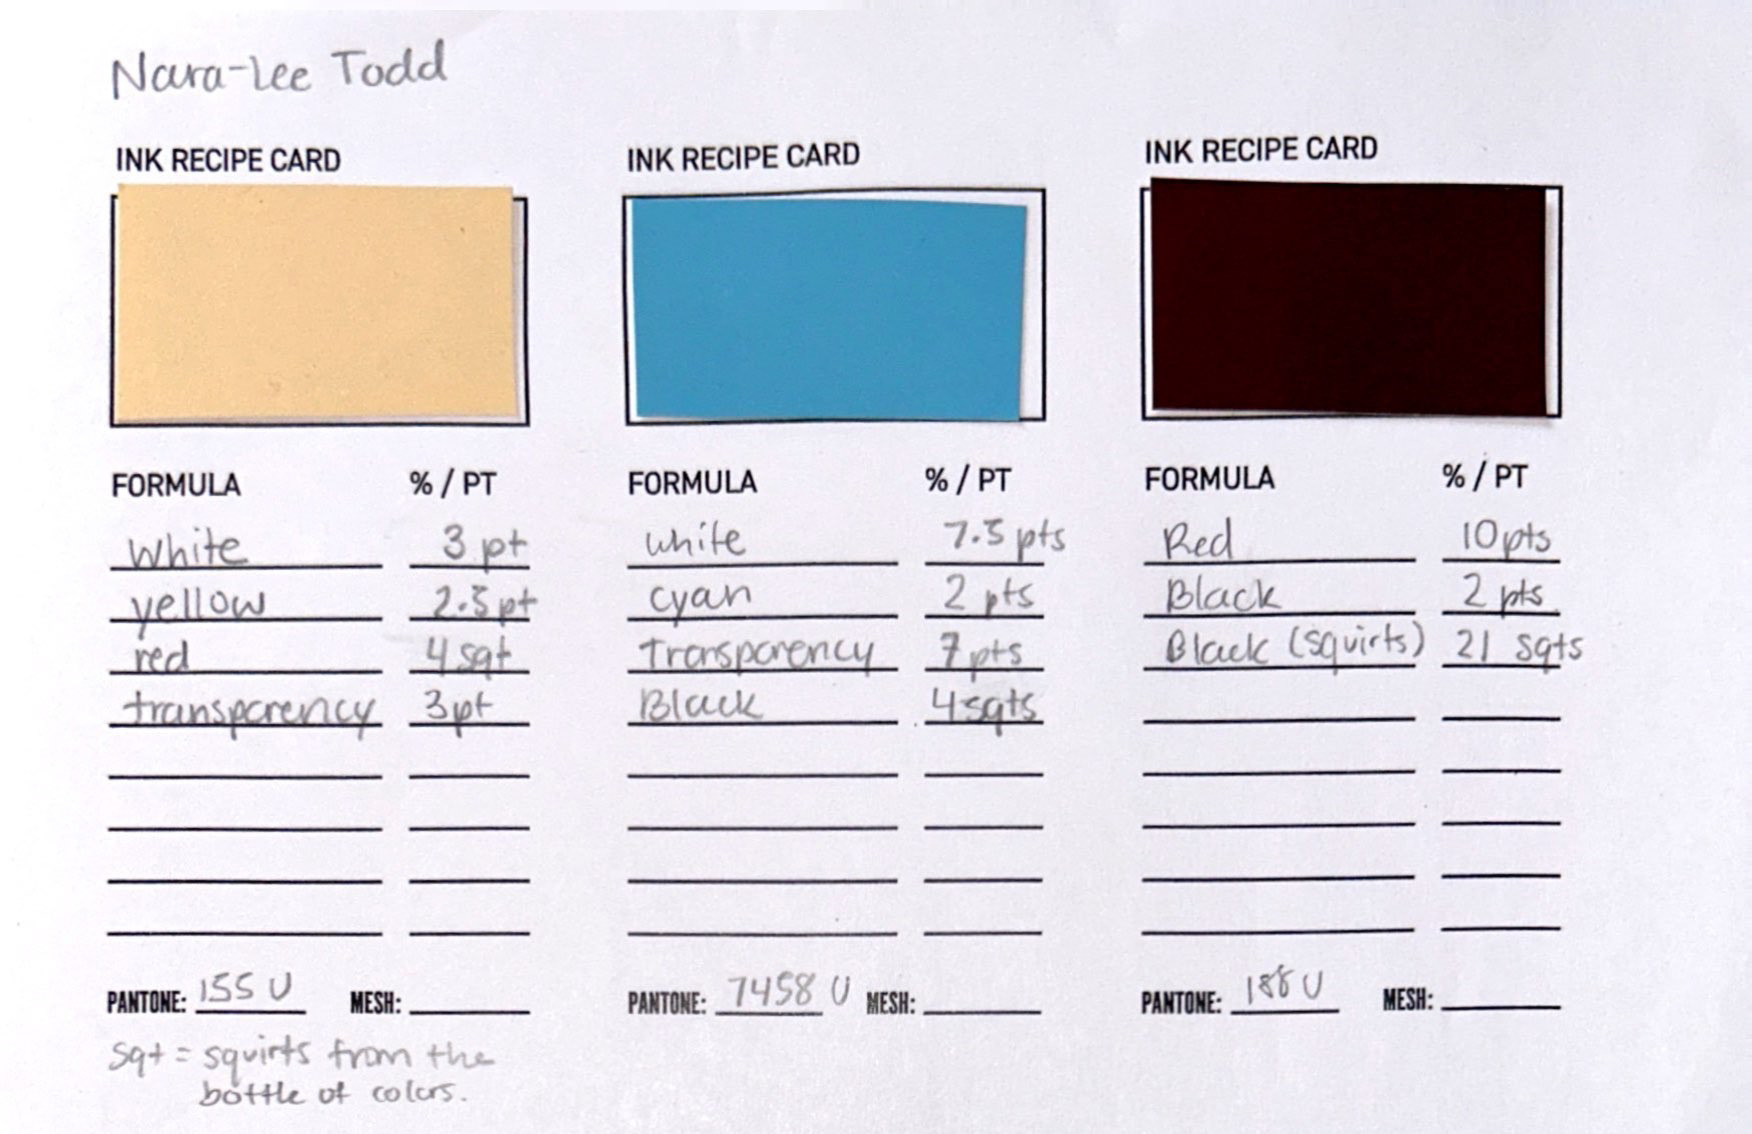 Nara-Lee Todd
INK RECIPE CARD
FORMULA % / PT
White 3 pt
yellow 2.5 pt
red 4 sqt
transparency 3pt
PANTONE: 155 U MESH:
sqt = squirts from the
bottle of colors.
INK RECIPE CARD
FORMULA % / PT
white 7.5 pts
cyan 2 pts
Transparency 7 pts
Black 4 sqts
PANTONE: 7458 U MESH:
INK RECIPE CARD
FORMULA % / PT
Red 10 pts
Black 2 pts
Black (squirts) 21 sqts
PANTONE: 188 U MESH: